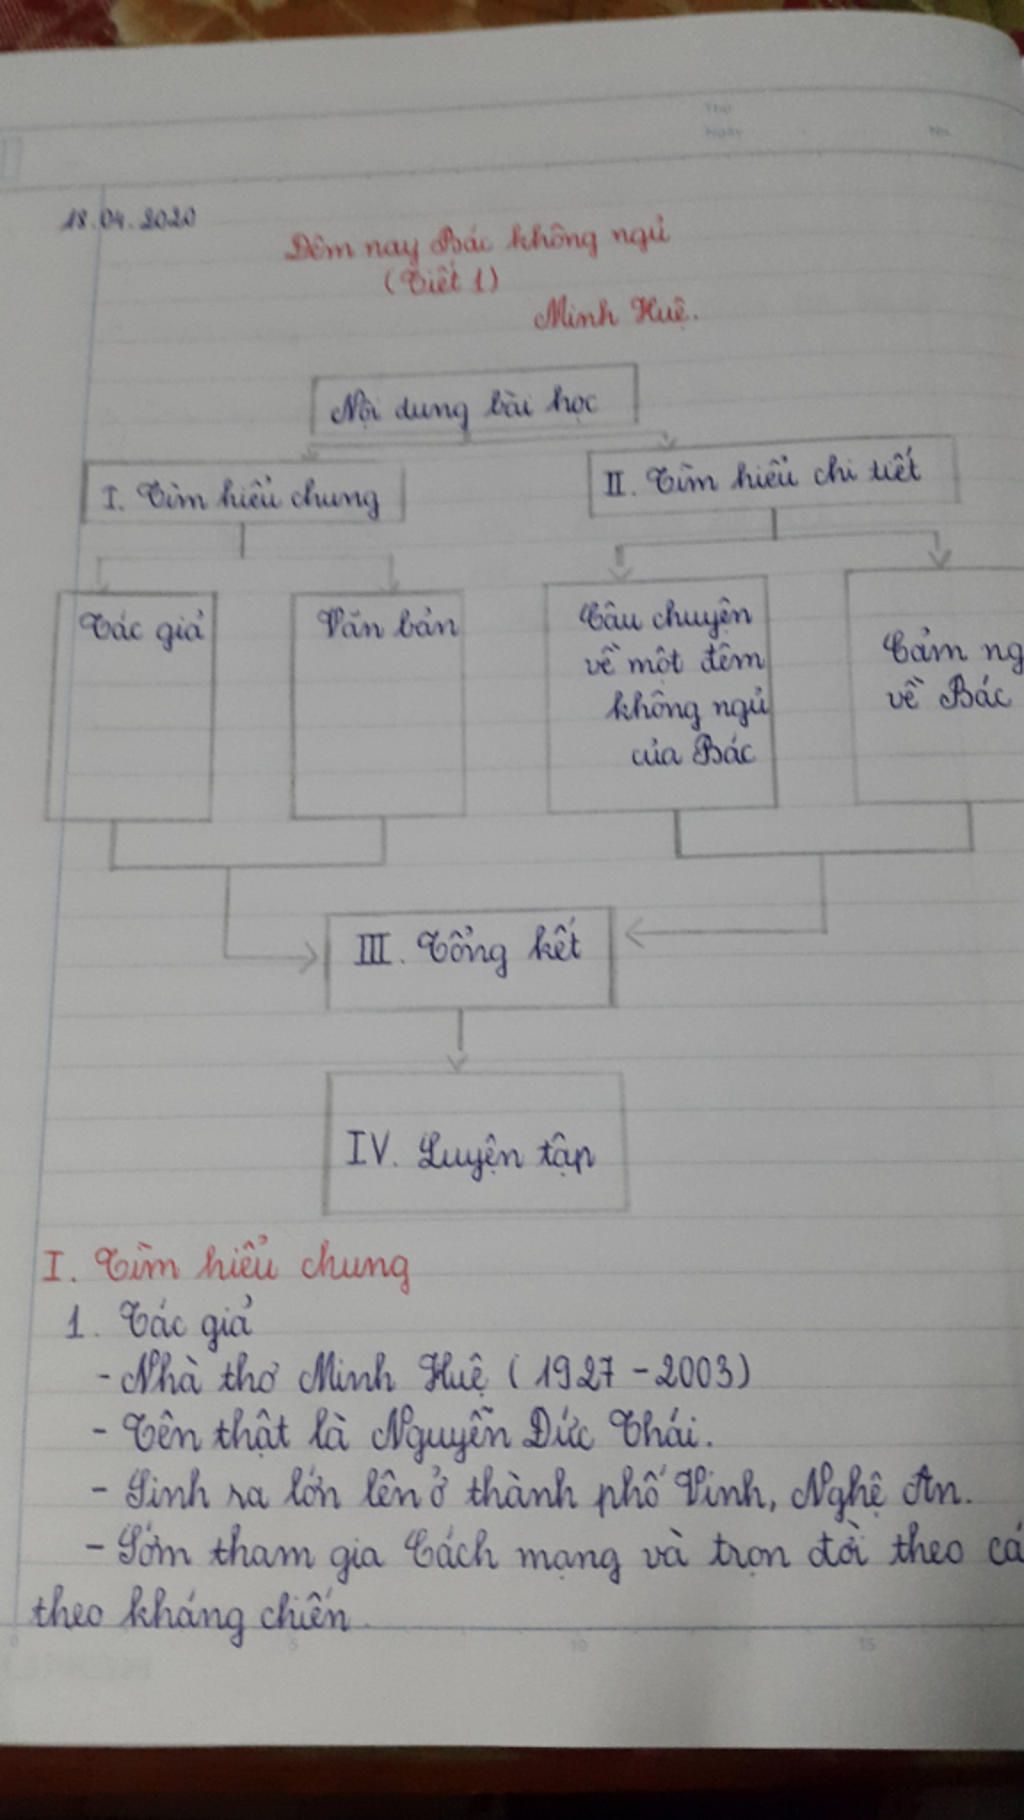 Thứ
Ngày
No.
18.04.2020
Đêm nay Bác không ngủ
(Tiết 1)
Minh Huệ.
Nội dung bài học
I. Tìm hiểu chung
II. Tìm hiểu chi tiết
Tác giả
Văn bản
Câu chuyện
về một đêm
không ngủ
của Bác
Cảm ng
về Bác
III. Tổng kết
IV. Luyện tập
I. Tìm hiểu chung
1. Tác giả
- Nhà thơ Minh Huệ (1927-2003)
- Tên thật là Nguyễn Đức Thái.
- Sinh ra lớn lên ở thành phố Vinh, Nghệ An.
- Sớm tham gia Cách mạng và trọn đời theo cá
theo kháng chiến.
0 5 10 15